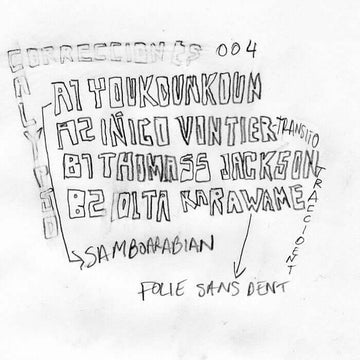 CORRECCIONES 004
CALYPSO
A1 YOUKOUNKOUN
A2 IÑIGO VONTIER TRANSITO
B1 THOMASS JACKSON TRACCIDENT
B2 OLTA KARAWAME
SAMBOARABIAN
FOLIE SANS DENT